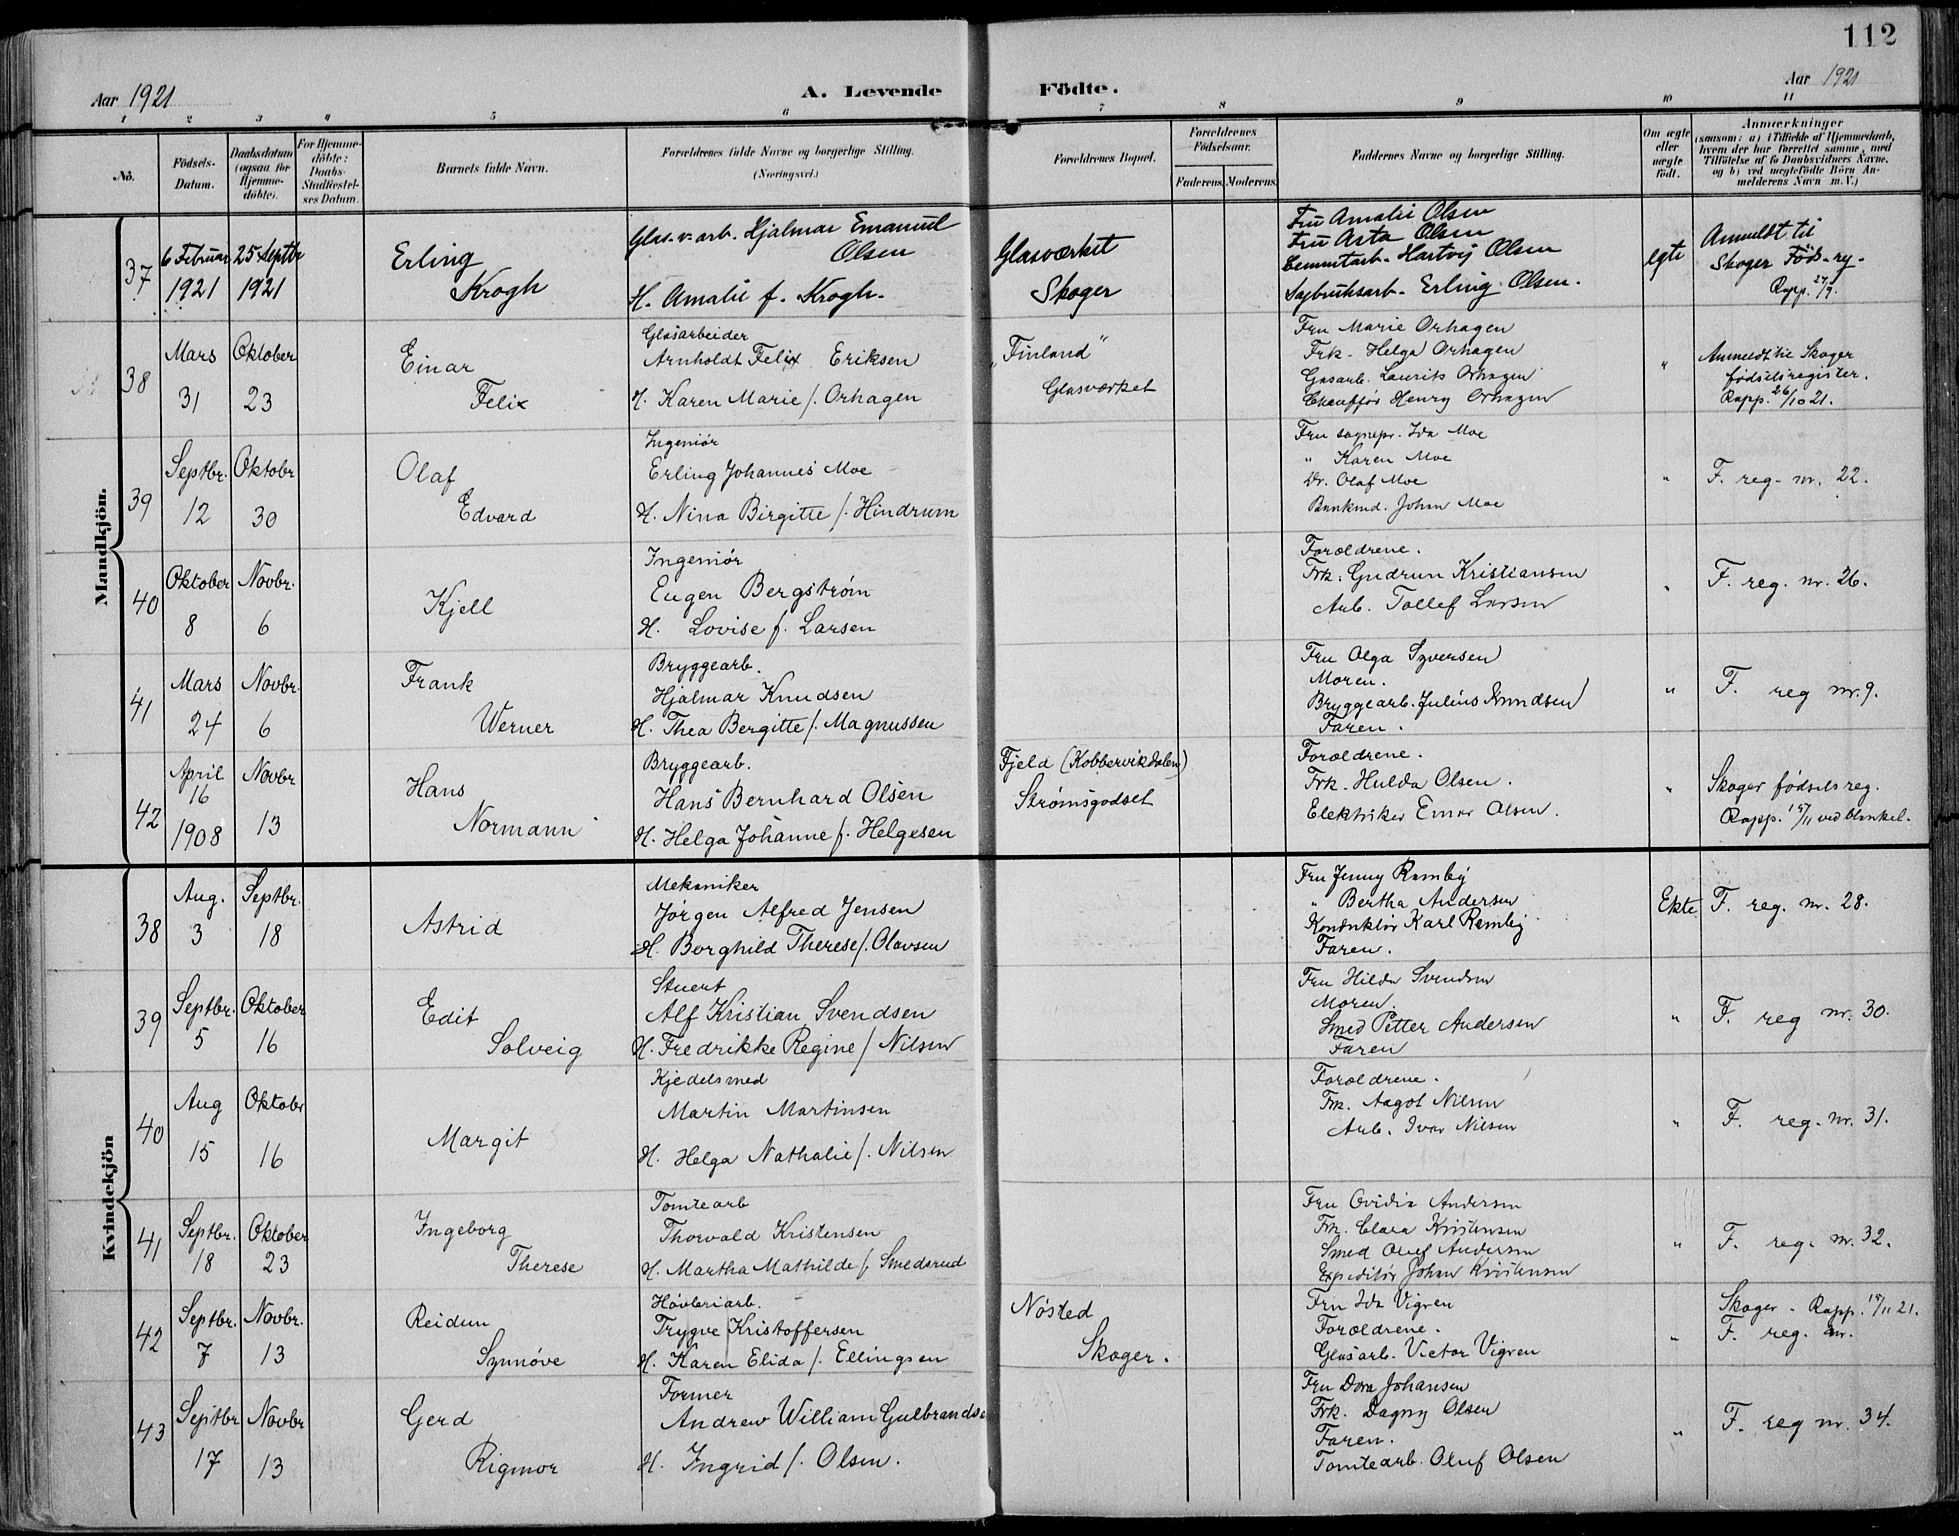 112
Aar 1921
A. Levende Födte.
Aar 1921
1 2 3 4 5 6 7 8 9 10 11
No.
Födsels-Datum.
Daabsdatum (ogsaa for Hjemmedöbte).
For Hjemmedöbte: Daabs-Stadfæstelses Datum.
Barnets fulde Navn.
Forældrenes fulde Navne og borgerlige Stilling. (Næringsvei.)
Forældrenes Bopæl.
Forældrenes Födselsaar.
Faderens. Moderens.
Faddernes Navne og borgerlige Stilling.
Om ægte eller uægte födt.
Anmærkninger
(saasom: a) i Tilfælde af Hjemmedaab, hvem der har forrettet samme, med Tilföielse af to Daabsvidners Navne. og b) ved uægtefödte Börn Anmelderens Navn m. V.)
Mandkjön.
37
6 Februar 1921
25 Septbr 1921
Erling
Krogh
Glas.v.arb. Hjalmar Emanuel
Olsen
H. Amalie f. Krogh.
Glasværket
Skoger
Fru Amalie Olsen
Fru Asta Olsen
Cementarb. Hartvig Olsen
Sagbruksarb. Erling Olsen.
egte
Anmeldt til
Skoger Föds-rg.
Rapp. 27/9.
38
Mars 31
Oktober 23
Einar
Felix
Glasarbeider
Arnholdt Felix Eriksen
H. Karen Marie f. Orhagen
"Finland"
Glasværket
Fru Marie Orhagen
Frk. Helga Orhagen
Gasarb. Laurits Orhagen
Chauffør Henry Orhagen
"
Anmeldt til Skoger
fødselsregister.
Rapp. 26/10 21.
39
Septbr. 12
Oktobr 30
Olaf
Edvard
Ingeniør
Erling Johannes Moe
H. Nina Birgitte f. Hindrum
Fru sognepr. Ida Moe
" Karen Moe
Dr. Olaf Moe
Johan Moe
"
F. reg. nr. 22.
40
Oktober 8
Novbr. 6
Kjell
Ingeniør
Eugen Bergstrøm
H. Lovise f. Larsen
Forældrene.
Frk. Gudrun Kristiansen
Arb. Tollef Larsen
"
F. reg. nr. 26.
41
Mars 24
Novbr. 6
Frank
Werner
Bryggearb.
Hjalmar Knudsen
H. Thea Bergitte f. Magnussen
Fru Olga Syversen
Moren.
Bryggearb. Julius Knudsen
Faren.
"
F. reg nr. 9.
42
April 16 1908
Novbr 13
Hans
Normann
Bryggearb.
Hans Bernhard Olsen
H. Helga Johanne f. Helgesen
Fjeld (Kobbervikdalen)
Strømsgodset
Forældrene.
Frk. Hulda Olsen.
Elektriker Einar Olsen.
"
Skoger fødselsreg.
Kvindekjön
38
Aug. 3
Septbr. 18
Astrid
Mekaniker
Jørgen Alfred Jensen
H. Borghild Therese f. Olavsen
Fru Jenny Ramby
" Bertha Andersen
Konduktør Karl Ramby
Faren.
Ekte
F. reg. nr. 28.
39
Septbr. 5
Oktober 16
Edit
Solveig
Stuert
Alf Kristian Svendsen
H. Fredrikke Regine f Nilsen
Fru Hilda Svendsen
Moren.
Smed Petter Andersen
Faren
"
F. reg nr. 30.
40
Aug 15
Oktobr 16
Margit
Kjedelsmed
Martin Martinsen
H. Helga Nathalie f. Nilsen
Forældrene.
Frk. Aagot Nilsen
Arb. Ivar Nilsen
"
F. reg. nr. 31.
41
Septbr. 18
Oktober 23
Ingeborg
Therese
Tomtearb
Thorvald Kristensen
H. Martha Mathilde f Smedsrud
Fru Ovidia Andersen
Frk. Clara Kristensen
Smed Oluf Andersen
Expeditør Johan Kristensen
"
F. reg. nr. 32.
42
Septbr. 7
Novbr. 13
Reidun
Synnøve
Høvleriarb.
Trygve Kristoffersen
H. Karen Elida f. Ellingsen
Nøsted
Skoger.
Fru Ida Vigren
Forældrene.
Glasarb. Victor Vigren
"
Skoger - Rapp. 17/11 21.
F. reg. nr.
43
Septbr 17
Novbr 13
Gerd
Rigmor
Former
Andrew William Gulbrands
H. Ingrid f. Olsen.
Fru Dora Johansen
Frk. Dagny Olsen
Faren.
Tomtearb. Oluf Olsen
"
F. reg nr. 34.